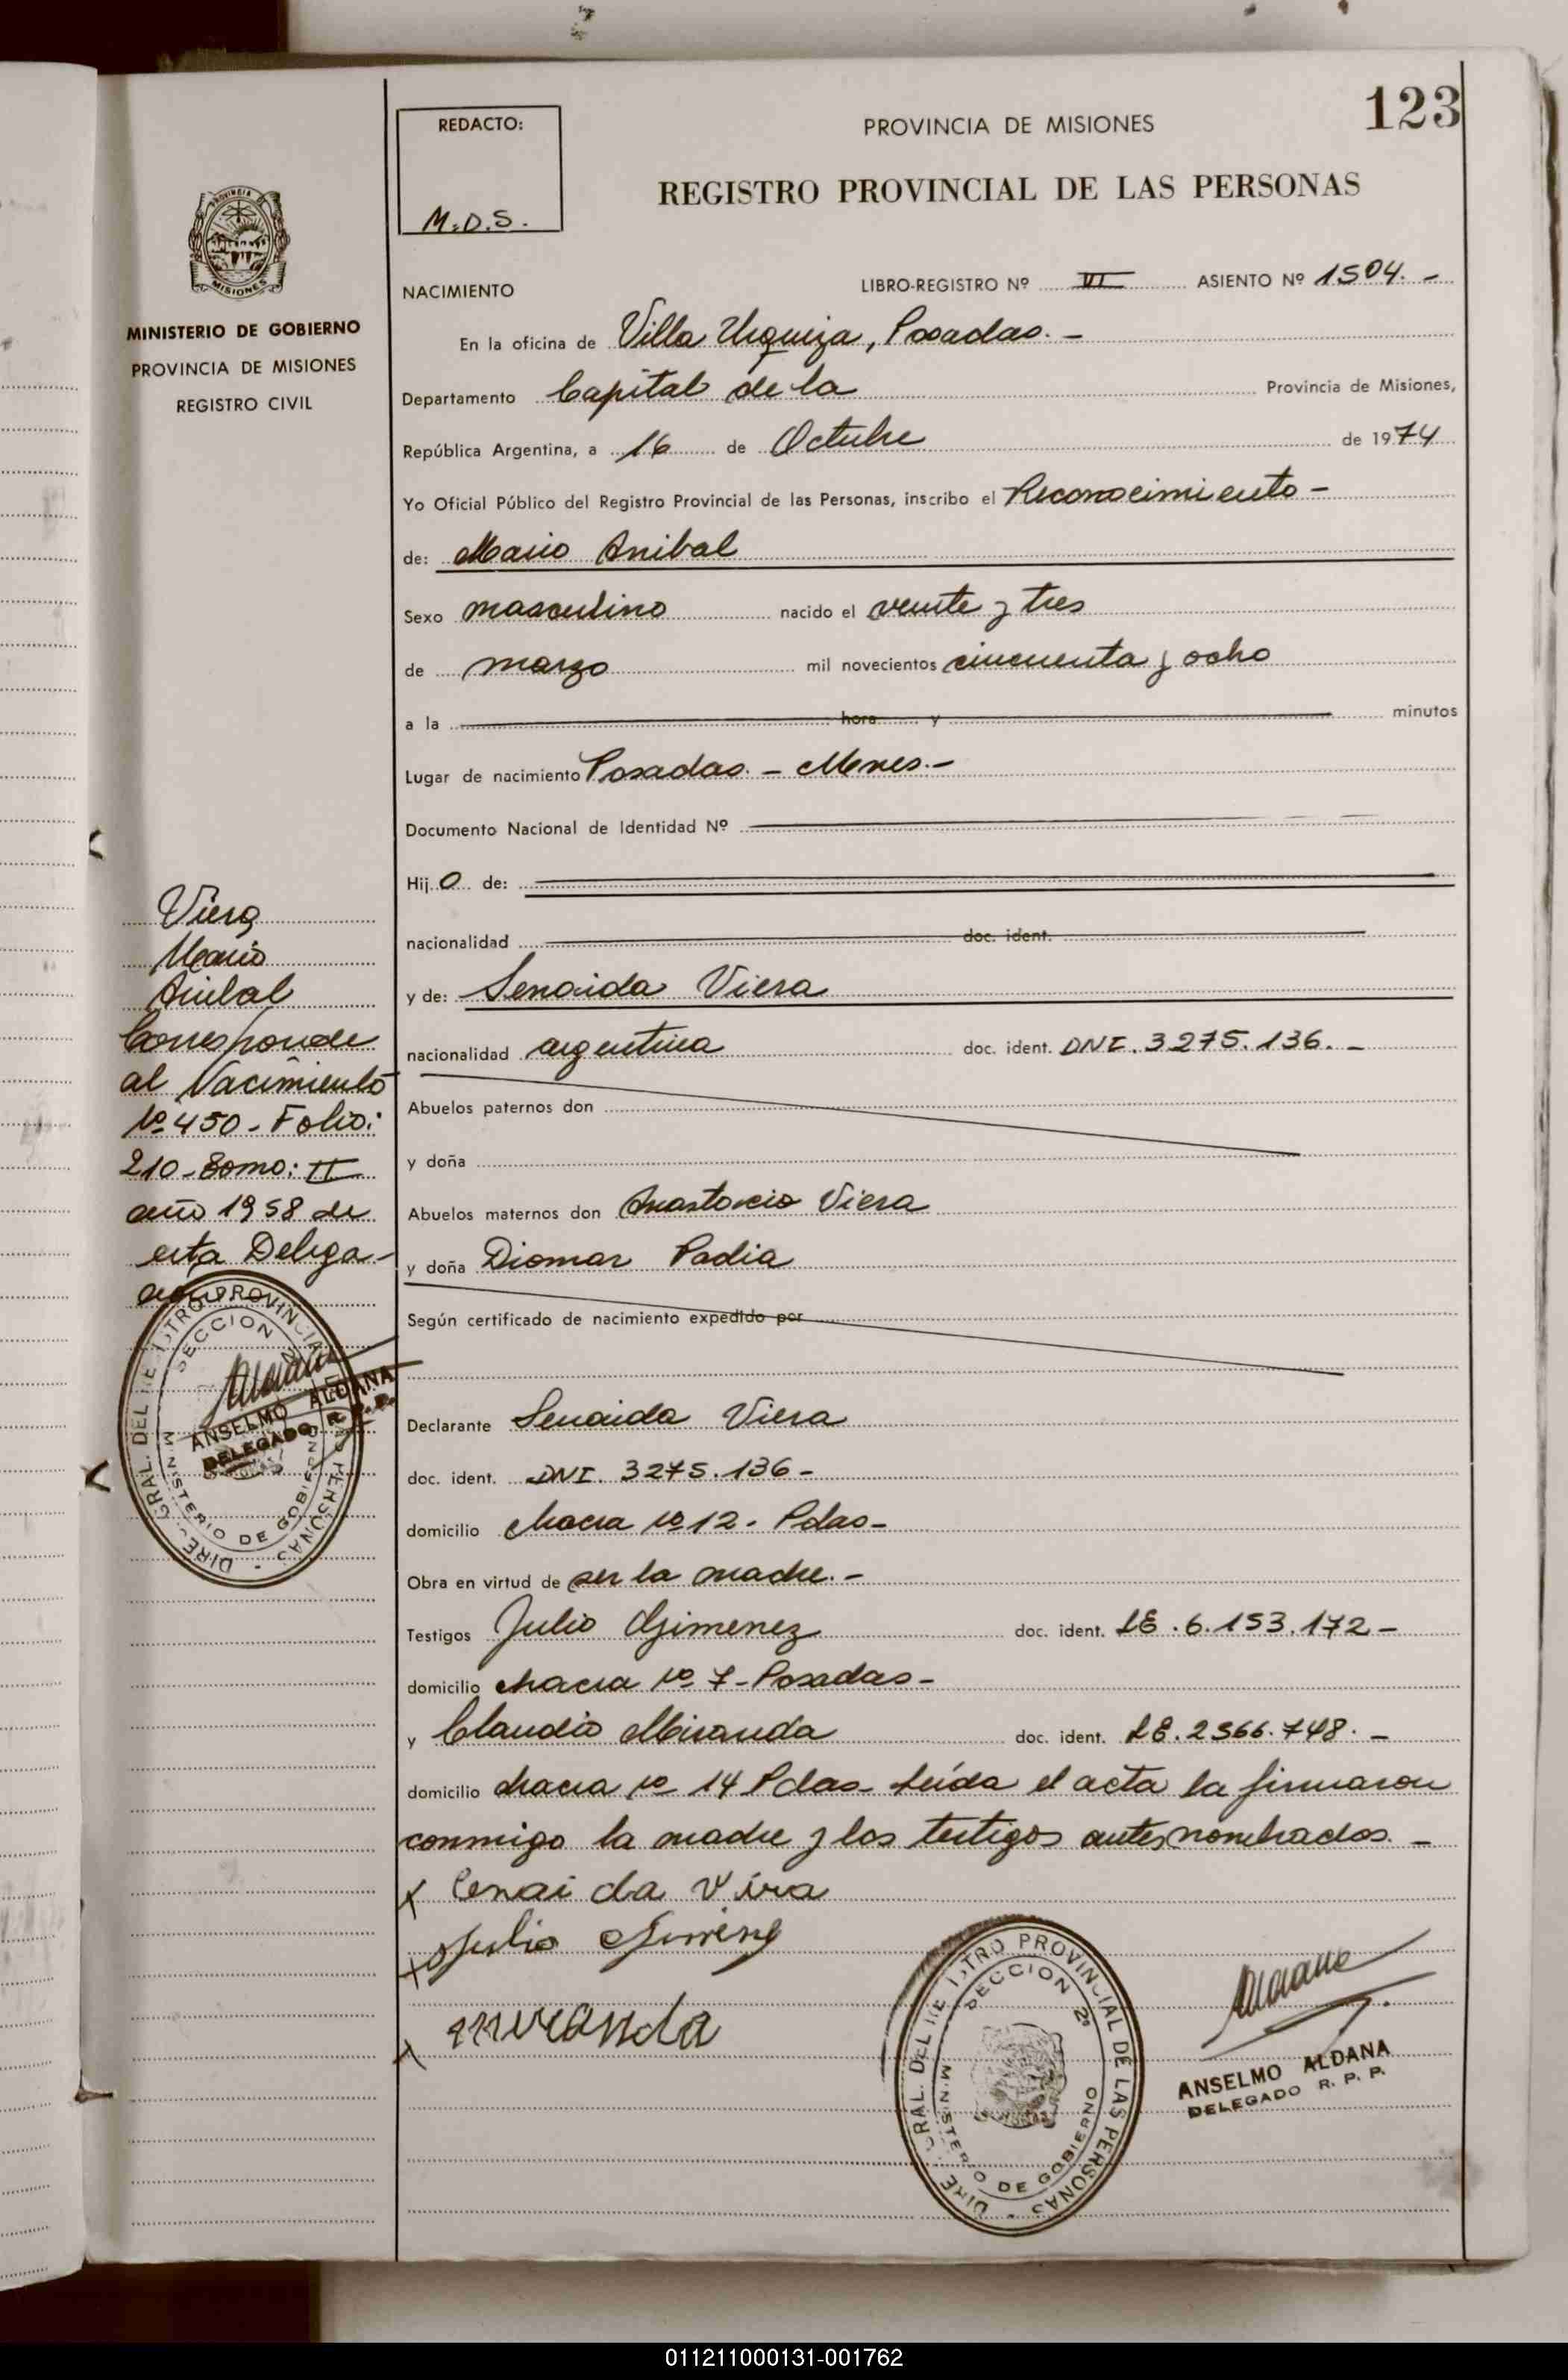 123
REDACTO:
M.D.S.
PROVINCIA DE MISIONES
REGISTRO PROVINCIAL DE LAS PERSONAS
PROVINCIA
MISIONES
MINISTERIO DE GOBIERNO
PROVINCIA DE MISIONES
REGISTRO CIVIL
NACIMIENTO LIBRO-REGISTRO Nº VI ASIENTO Nº 1504.-
En la oficina de Villa Urquiza, Posadas.-
Departamento Capital de la Provincia de Misiones,
República Argentina, a 16 de Octubre de 1974
Yo Oficial Público del Registro Provincial de las Personas, inscribo el Reconocimiento-
de: Mario Anibal
Sexo masculino nacido el veinte y tres
de marzo mil novecientos cincuenta y ocho
a la hora y minutos
Lugar de nacimiento Posadas.- Mnes.-
Documento Nacional de Identidad Nº
Hijo de:
nacionalidad doc. ident.
y de: Senaida Viera
nacionalidad argentina doc. ident. DNI. 3275.136.-
Abuelos paternos don
y doña
Abuelos maternos don Anastacio Viera
y doña Diomar Padia
Según certificado de nacimiento expedido por
Declarante Senaida Viera
doc. ident. DNI. 3275.136-
domicilio chacra Nº 12. Pdas-
Obra en virtud de ser la madre.-
Testigos Julio Gimenez doc. ident. LE.6.153.172-
domicilio chacra Nº 7-Posadas-
y Claudio Miranda doc. ident. LE.2566.748.-
domicilio chacra Nº 14 Pdas- Leída el acta la firmaron
conmigo la madre y los testigos antes nombrados.-
x Cenai da Vira
x Julio
x miranda
Viera
Mario
Anibal
Corresponde
al Nacimiento
Nº 450-Folio:
210-Tomo: II
año 1958 de
esta Delega-
cion
DIRE. GRAL. DEL REGISTRO PROVINCIAL DE LAS PERSONAS
SECCION 2ª
MINISTERIO DE GOBIERNO
ANSELMO ALDANA
DELEGADO R. P. P.
DIRE. GRAL. DEL REGISTRO PROVINCIAL DE LAS PERSONAS
SECCION 2ª
MINISTERIO DE GOBIERNO
ANSELMO ALDANA
DELEGADO R. P. P.
011211000131-001762